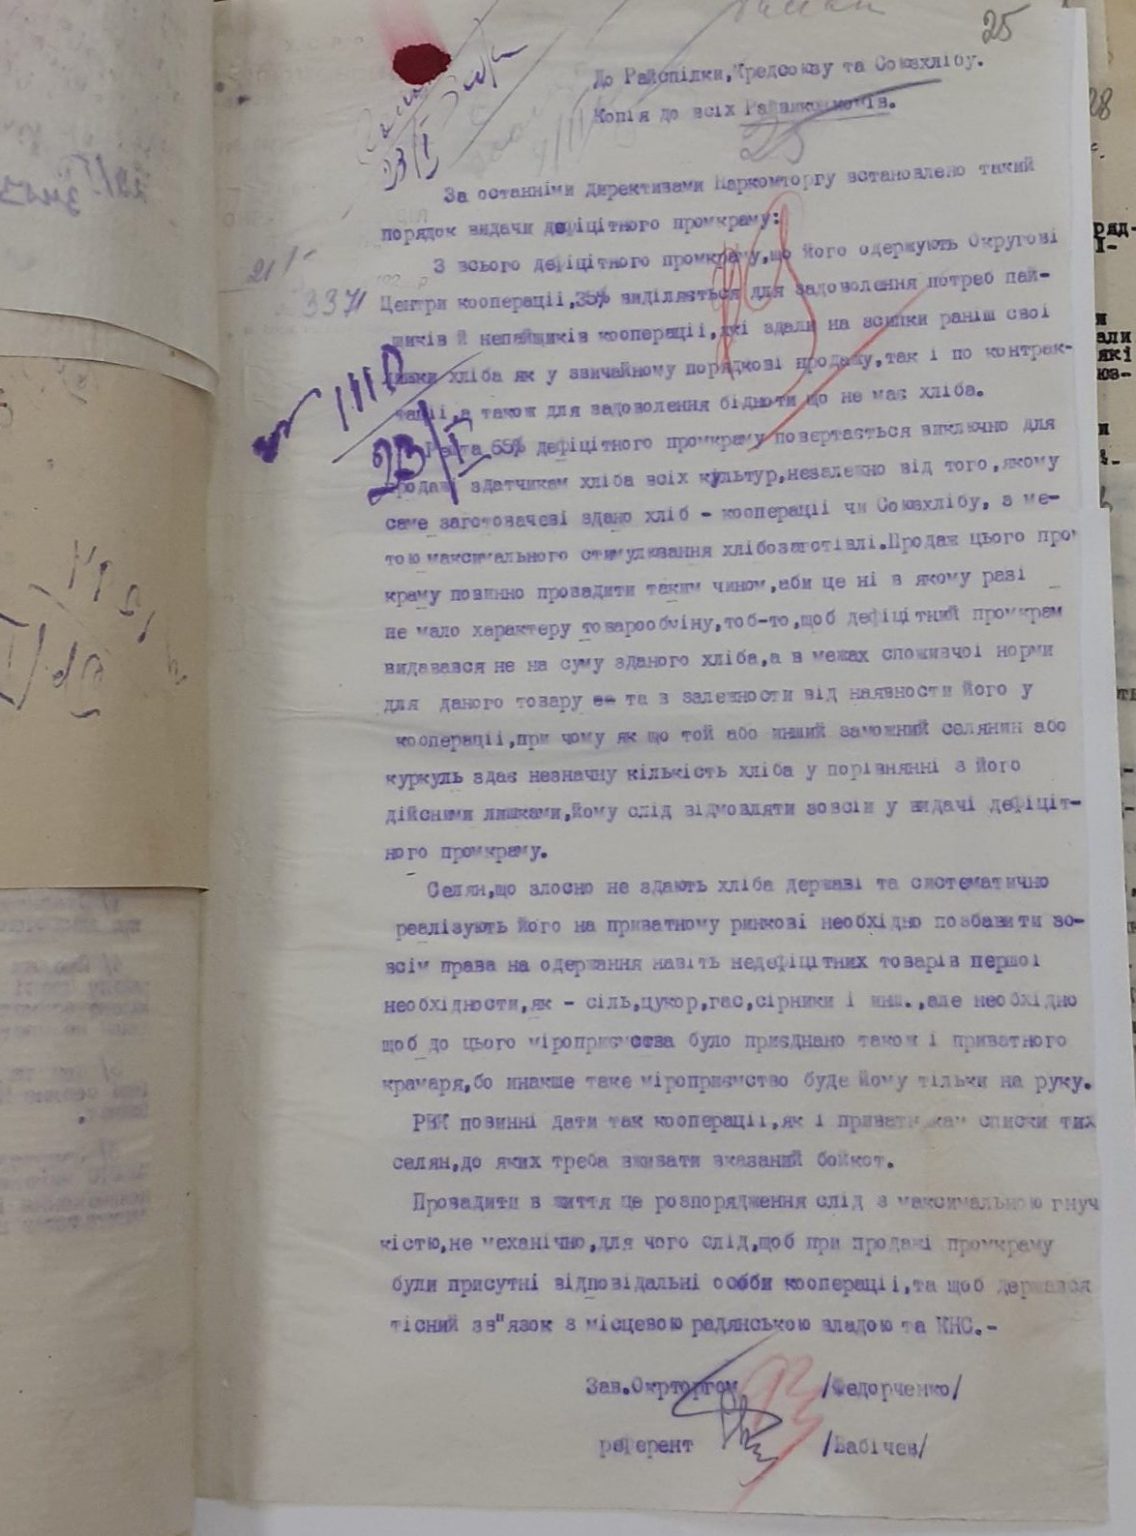 25
До Райспілки, Кредсоюзу та Союзхлібу.
Копія до всіх Райвиконкомів.
25
23/I
За останніми директивами Наркомторгу встановлено такий
порядок видачи дефіцітного промкраму:
З всього дефіцітного промкраму, що його одержують Округові
21/I
Центри кооперації, 35% виділяється для задоволення потреб пай-
3371
щиків й непайщиків кооперації, які здали на зсипки раніш свої
лишки хліба як у звичайному порядкові продажу, так і по контрак-
тації, а також для задоволення бідноти що не має хліба.
23/I
Решта 65% дефіцітного промкраму повертається виключно для
продажі здатчикам хліба всіх культур, незалежно від того, якому
саме заготовачеві здано хліб - кооперації чи Союзхлібу, з ме-
тою максимального стимулювання хлібозаготівлі. Продаж цього про
краму повинно провадити таким чином, аби це ні в якому разі
не мало характеру товарообміну, тоб-то, щоб дефіцітний промкрам
видавався не на суму зданого хліба, а в межах споживчої норми
для даного товару та в залежности від наявности його у
кооперації, при чому як що той або инший заможний селянин або
куркуль здає незначну кількість хліба у порівнянні з його
дійсними лишками, йому слід відмовляти зовсім у видачі дефіціт-
ного промкраму.
Селян, що злосно не здають хліба державі та систематично
реалізують його на приватному ринкові необхідно позбавити зо-
всім права на одержання навіть недефіцітних товарів першої
необхідности, як - сіль, цукор, гас, сірники і инш., але необхідно
щоб до цього міроприємства було приєднано також і приватного
крамаря, бо инакше таке міроприємство буде йому тільки на руку.
РВК повинні дати так кооперації, як і приватникам списки тих
селян, до яких треба вживати вказаний бойкот.
Провадити в життя це розпорядження слід з максимальною гнуч
кістю, не механічно, для чого слід, щоб при продажі промкраму
були присутні відповідальні особи кооперації, та щоб держався
тісний зв"язок з місцевою радянською владою та КНС.-
Зав. Окрторгом /Федорченко/
референт /Бабічев/